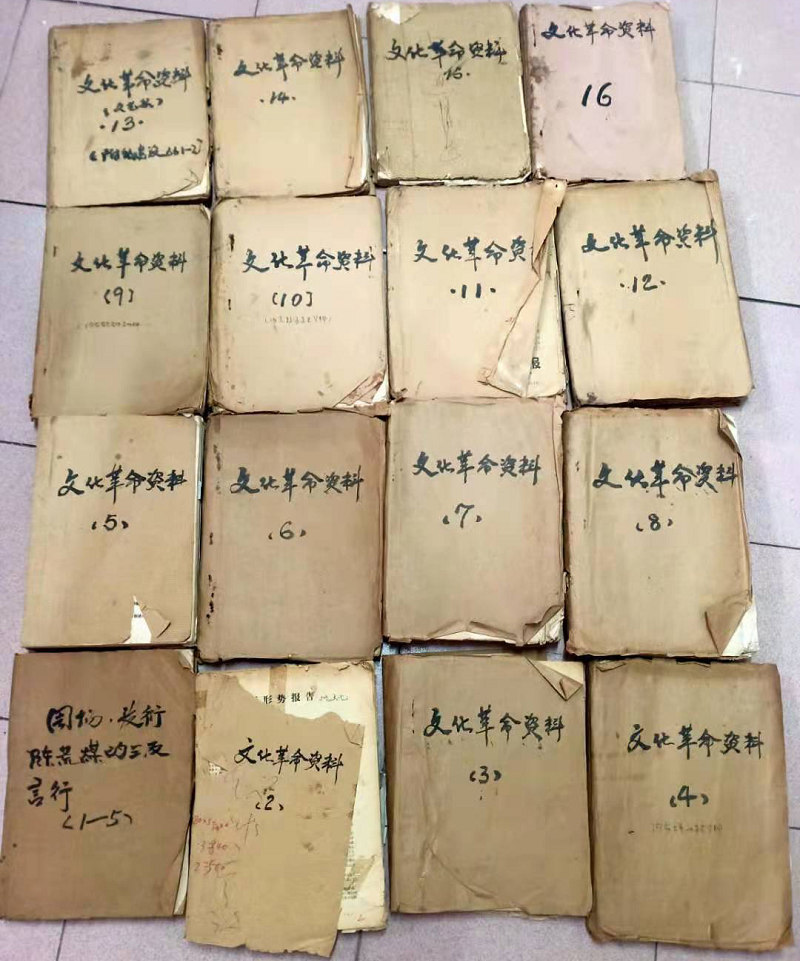 文化革命资料
13
文化革命资料
·14·
文化革命资料
15·
文化革命资料
16
文化革命资料
(9)
文化革命资料
(10)
文化革命资
·11·
报
文化革命资料
·12·
文化革命资料
(5)
文化革命资料
(6)
文化革命资料
(7)
文化革命资料
(8)
周扬·夏衍
陈荒煤的三反
言行
(1—5)
形势报告
文化革命资料
(2)
文化革命资料
(3)
文化革命资料
(4)